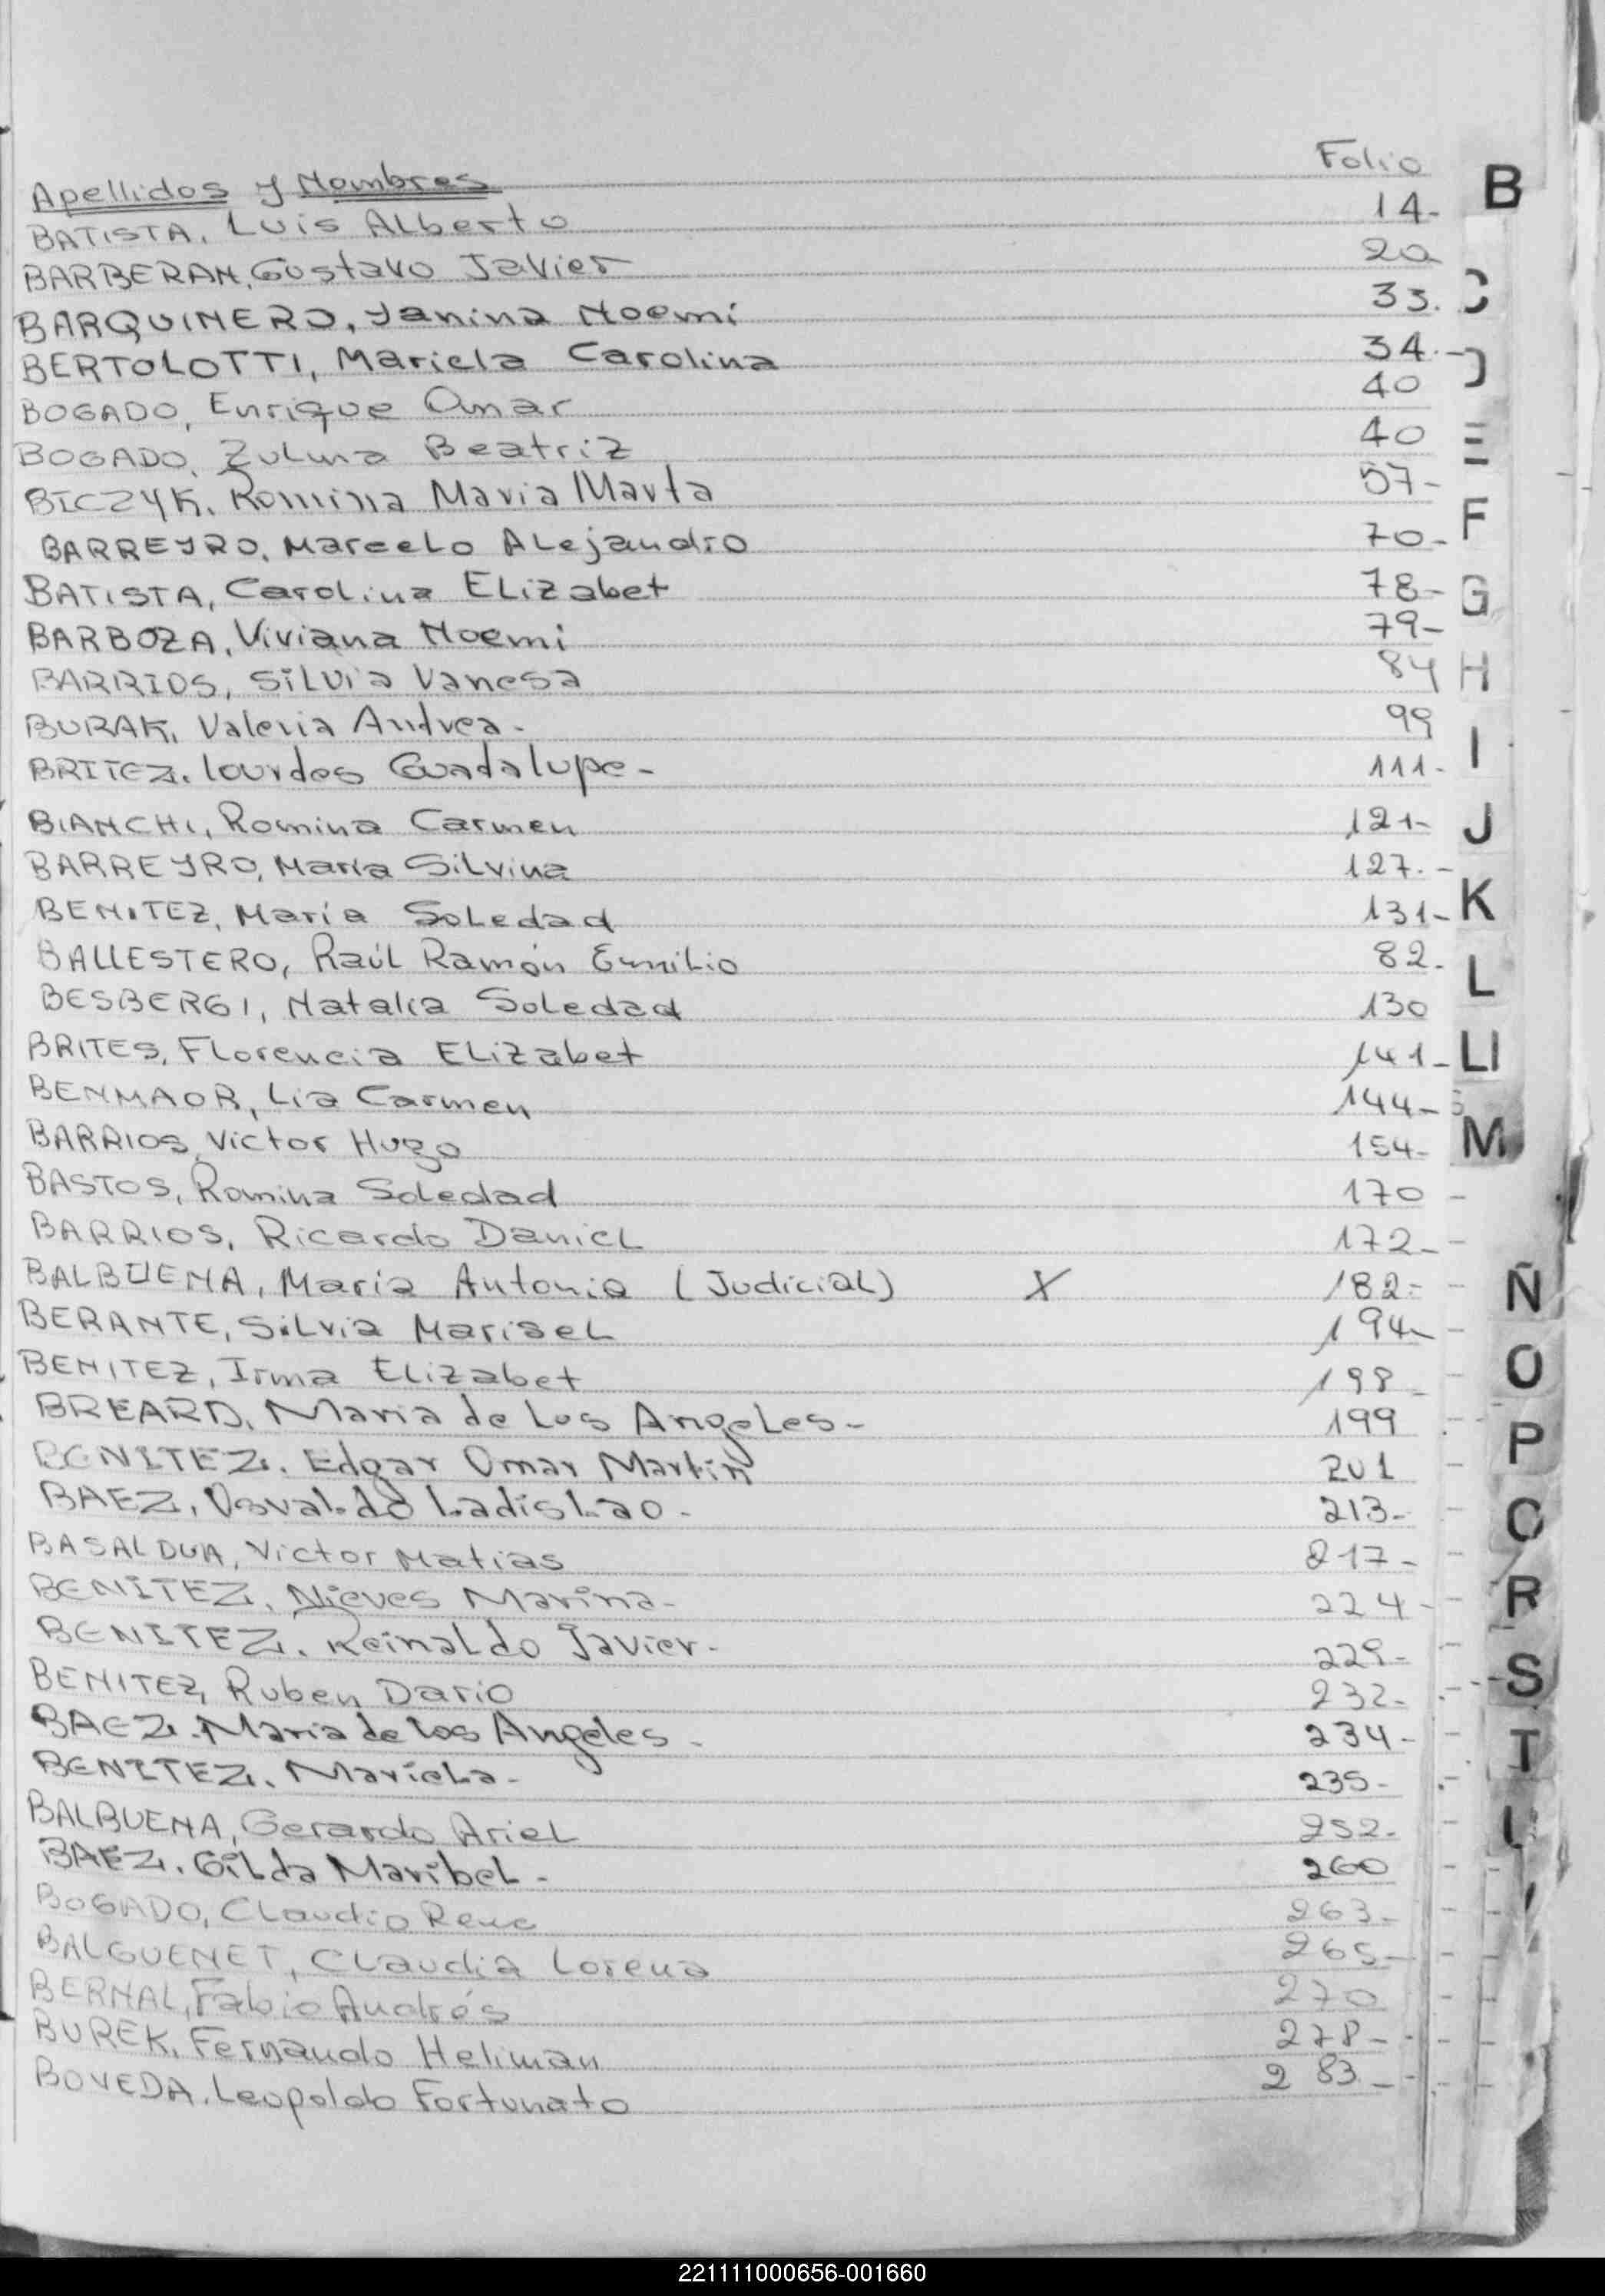 Folio
Apellidos y Nombres
BATISTA, Luis Alberto 14-
BARBERAN, Gustavo Javier 20
BARQUINERO, Yanina Noemí 33.
BERTOLOTTI, Mariela Carolina 34.-
BOGADO, Enrique Omar 40
BOGADO, Zulma Beatriz 40
BICZYK, Romina Maria Marta 57-
BARREYRO, Marcelo Alejandro 70-
BATISTA, Carolina Elizabet 78-
BARBOZA, Viviana Noemi 79-
BARRIOS, Silvia Vanesa 84
BURAK, Valeria Andrea- 99
BRITEZ, Lourdes Guadalupe- 111-
BIANCHI, Romina Carmen 121-
BARREYRO, María Silvina 127.-
BENITEZ, María Soledad 131-
BALLESTERO, Raúl Ramón Emilio 82.
BESBERGI, Natalia Soledad 130
BRITES, Florencia Elizabet 141-
BENMAOR, Lia Carmen 144-
BARRIOS, Victor Hugo 154-
BASTOS, Romina Soledad 170
BARRIOS, Ricardo Daniel 172-
BALBUENA, María Antonia (Judicial) X 182-
BERANTE, Silvia Marisel 194-
BENITEZ, Irma Elizabet 198-
BREARD, Maria de Los Angeles- 199
BENITEZ, Edgar Omar Martín 201
BAEZ, Osvaldo Ladislao- 213-
BASALDUA, Victor Matias 217-
BENITEZ, Nieves Marina- 224-
BENITEZ, Reinaldo Javier- 229-
BENITEZ, Ruben Dario 232-
BAEZ, Maria de los Angeles- 234-
BENITEZ, Mariela- 235-
BALBUENA, Gerardo Ariel 252-
BAEZ, Gilda Maribel- 260
BOGADO, Claudio Rene 263-
BALGUENET, Claudia Lorena 265-
BERNAL, Fabio Andrés 270
BUREK, Fernando Heliman 278-
BOVEDA, Leopoldo Fortunato 283-
B
F
G
H
I
J
K
L
Ll
M
Ñ
O
P
R
S
T
221111000656-001660